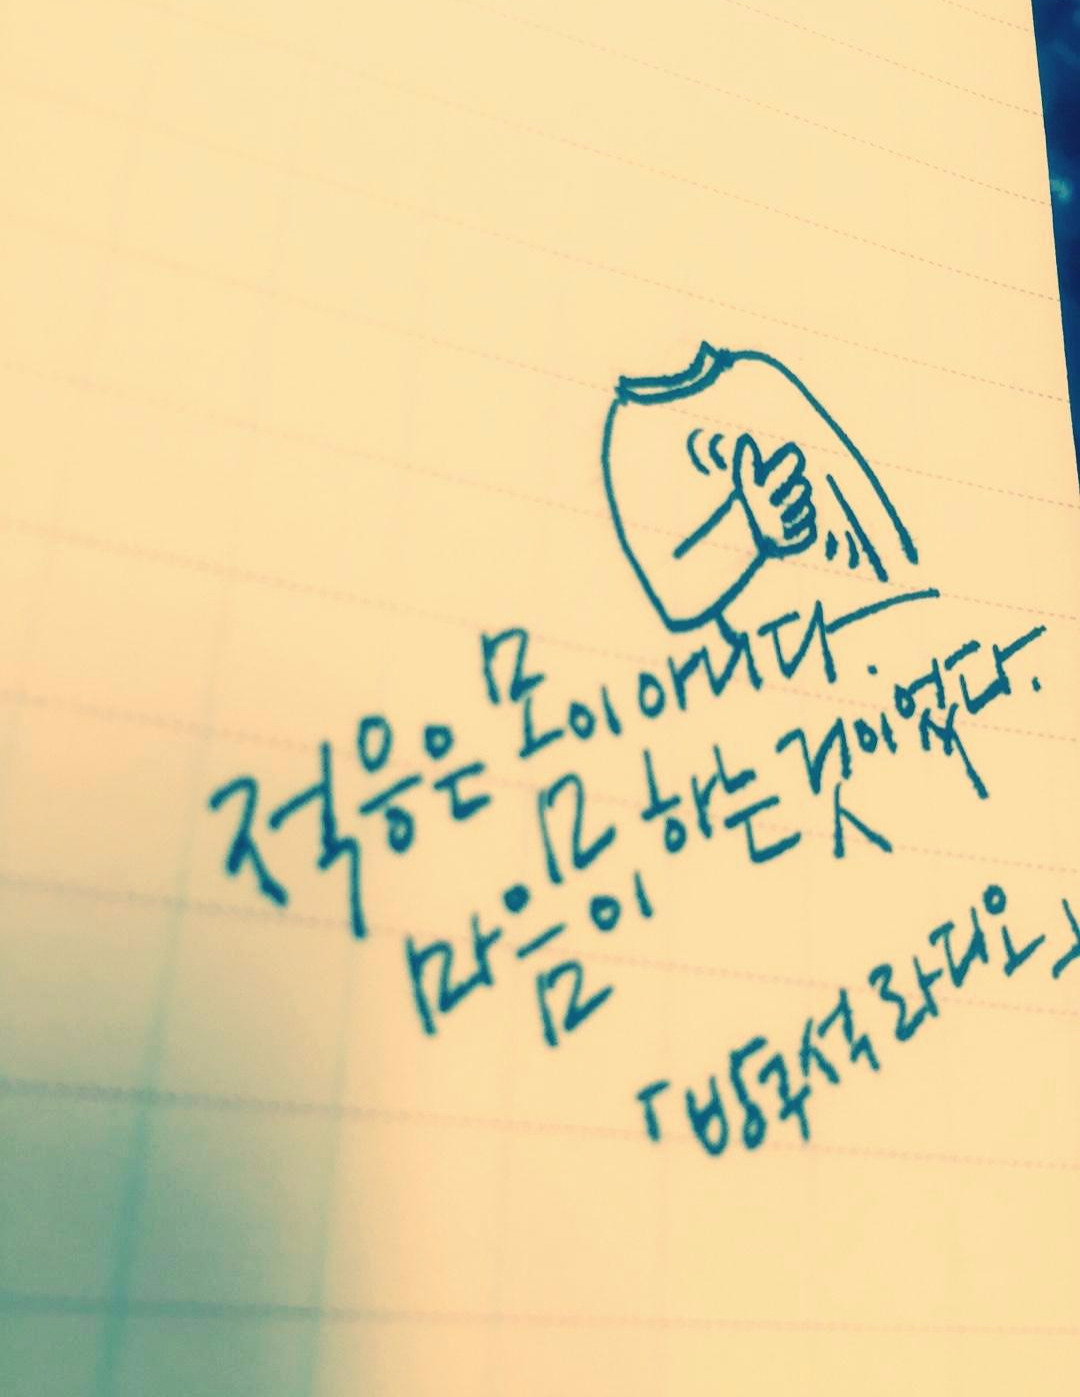 적응은 몸이 아니다.
마음이 하는 것이었다.
「방구석 라디오」